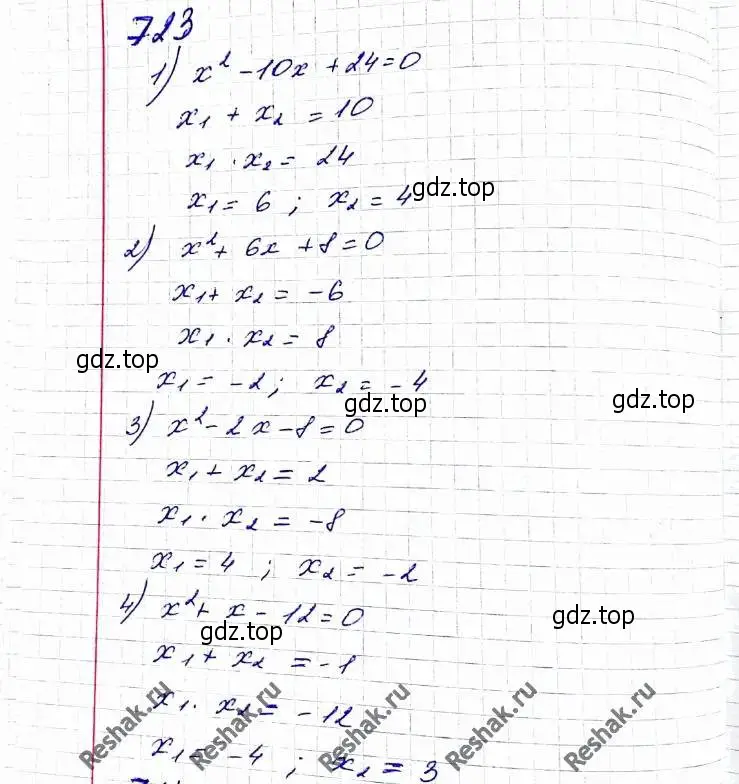 723
1) x² - 10x + 24 = 0
x₁ + x₂ = 10
x₁ · x₂ = 24
x₁ = 6 ; x₂ = 4
gdz.top
2) x² + 6x + 8 = 0
x₁ + x₂ = -6
x₁ · x₂ = 8
gdz.top
x₁ = -2 ; x₂ = -4
gdz.top gdz.top
3) x² - 2x - 8 = 0
x₁ + x₂ = 2
x₁ · x₂ = -8
x₁ = 4 ; x₂ = -2
4) x² + x - 12 = 0
gdz.top gdz.top
x₁ + x₂ = -1
x₁ · x₂ = -12
Reshak.ru Reshak.ru Reshak.ru Reshak.ru Reshak.ru
x₁ = -4 ; x₂ = 3